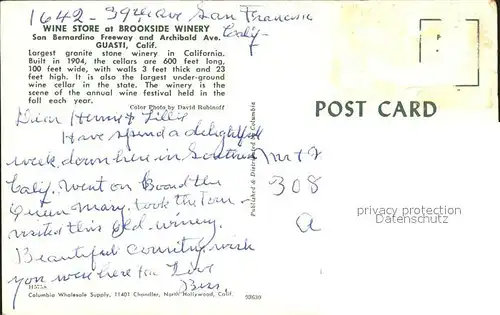 1642 - 39th ave San Francisco
Calif-
WINE STORE at BROOKSIDE WINERY
San Bernardino Freeway and Archibald Ave.
GUASTI, Calif.
Largest granite stone winery in California.
Built in 1904, the cellars are 600 feet long,
100 feet wide, with walls 3 feet thick and 23
feet high. It is also the largest under-ground
wine cellar in the state. The winery is the
scene of the annual wine festival held in the
fall each year.
Color Photo by David Robinoff
POST CARD
Published & Distributed by Columbia
Dear Henry & Lillie
Have spend a delightful
week down here in Southern
Calif. Went on Board the
Queen Mary. took the Tour -
visited this old winery.
Beautiful Country wish
you were here too Love
Bess.
M & V
308
a
privacy protection
Datenschutz
H575A
Columbia Wholesale Supply, 11401 Chandler, North Hollywood, Calif.